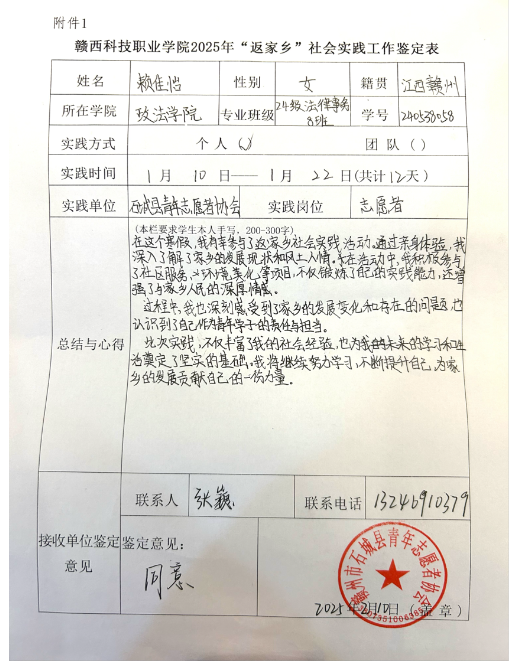 附件1
赣西科技职业学院2025年“返家乡”社会实践工作鉴定表
姓名 赖佳怡 性别 女 籍贯 江西赣州
所在学院 政法学院 专业班级 24级法律事务8班 学号 240538058
实践方式 个人(√) 团队()
实践时间 1月10日——1月22日(共计12天)
实践单位 石城县青年志愿者协会 实践岗位 志愿者
(本栏要求学生本人手写，200-300字)
在这个寒假，我有幸参与了返家乡社会实践活动。通过亲身体验，我
深入了解了家乡的发展现状和风土人情。在活动中，我积极参与
了社区服务、环境美化等项目，不仅锻炼了自己的实践能力，还增
强了与家乡人民的深厚情感。
过程中，我也深刻感受到了家乡的发展变化和存在的问题，也
认识到了自己作为青年学子的责任与担当。
总结与心得
此次实践，不仅丰富了我的社会经验，也为我的未来的学习和生
活奠定了坚实的基础，我将继续努力学习，不断提升自己，为家
乡的发展贡献自己的一份力量。
联系人 张巍 联系电话 13246910379
接收单位鉴定意见
鉴定意见：
同意
赣州市石城县青年志愿者协会
2025年2月10日（盖章）